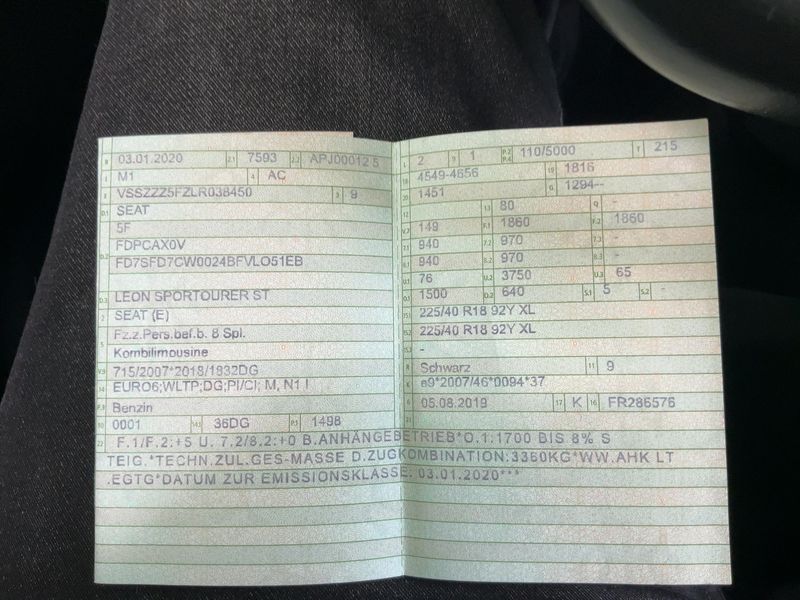 B 03.01.2020 2.1 7593 2.2 APJ00012 5
J M1 4 AC
E VSSZZZ5FZLR038450 3 9
D.1 SEAT
5F
D.2 FDPCAX0V
FD7SFD7CW0024BFVLO51EB
D.3 LEON SPORTOURER ST
2 SEAT (E)
5 Fz.z.Pers.bef.b. 8 Spl.
Kombilimousine
V.9 715/2007*2018/1832DG
14 EURO6;WLTP;DG;PI/CI; M, N1 I
P.3 Benzin
10 0001 14.1 36DG P.1 1498
L 2 9 1 P.2 P.4 110/5000 T 215
18 4549-4656 19 1816
20 1451 G 1294--
12 - 13 80 Q -
V.7 149 F.1 1860 F.2 1860
7.1 940 7.2 970 7.3 -
8.1 940 8.2 970 8.3 -
U.1 76 U.2 3750 U.3 65
O.1 1500 O.2 640 S.1 5 S.2 -
15.1 225/40 R18 92Y XL
15.2 225/40 R18 92Y XL
15.3 -
R Schwarz 11 9
K e9*2007/46*0094*37
6 05.08.2019 17 K 16 FR286576
21
22 F.1/F.2:+5 U. 7.2/8.2:+0 B.ANHÄNGEBETRIEB*O.1:1700 BIS 8% S
TEIG.*TECHN.ZUL.GES-MASSE D.ZUGKOMBINATION:3360KG*WW.AHK LT
.EGTG*DATUM ZUR EMISSIONSKLASSE: 03.01.2020***